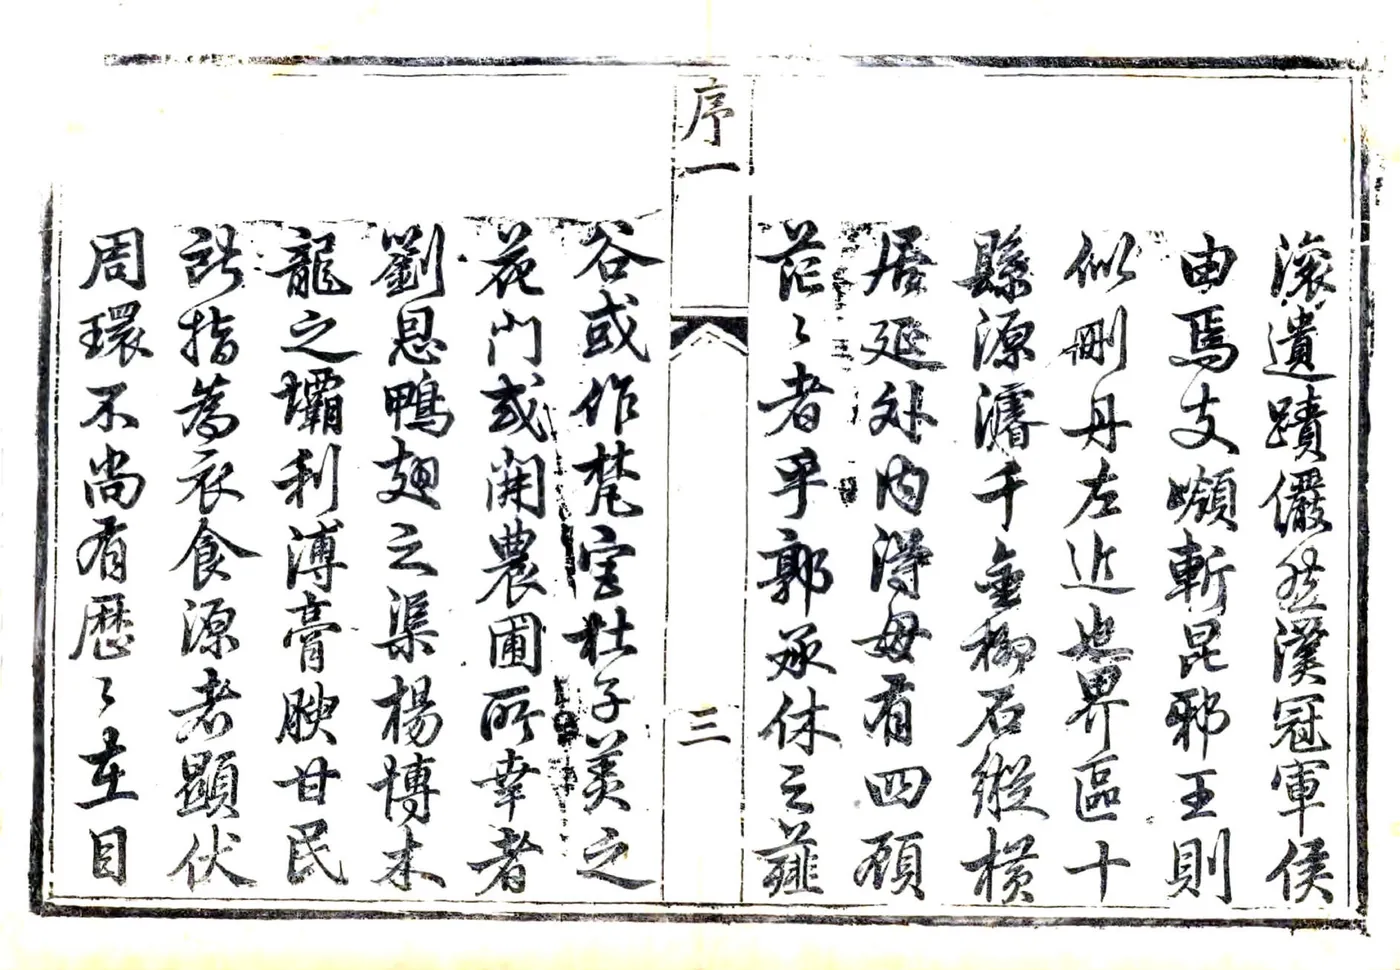 滚遺蹟儼然漢冠軍侯
由焉支嶺斬昆邪王則
似刪丹左近也界區十
縣源濬千金柳石縱横
居延外内得毋有四顧
茫〻者乎郭承休之薤
序一
三
谷或作梵宫杜子美之
花门或闢農圃所幸者
劉恩鴨翅之渠楊博木
龍之壩利溥膏腴甘民
咸指為衣食源者顯伏
周環不尚有歷〻在目